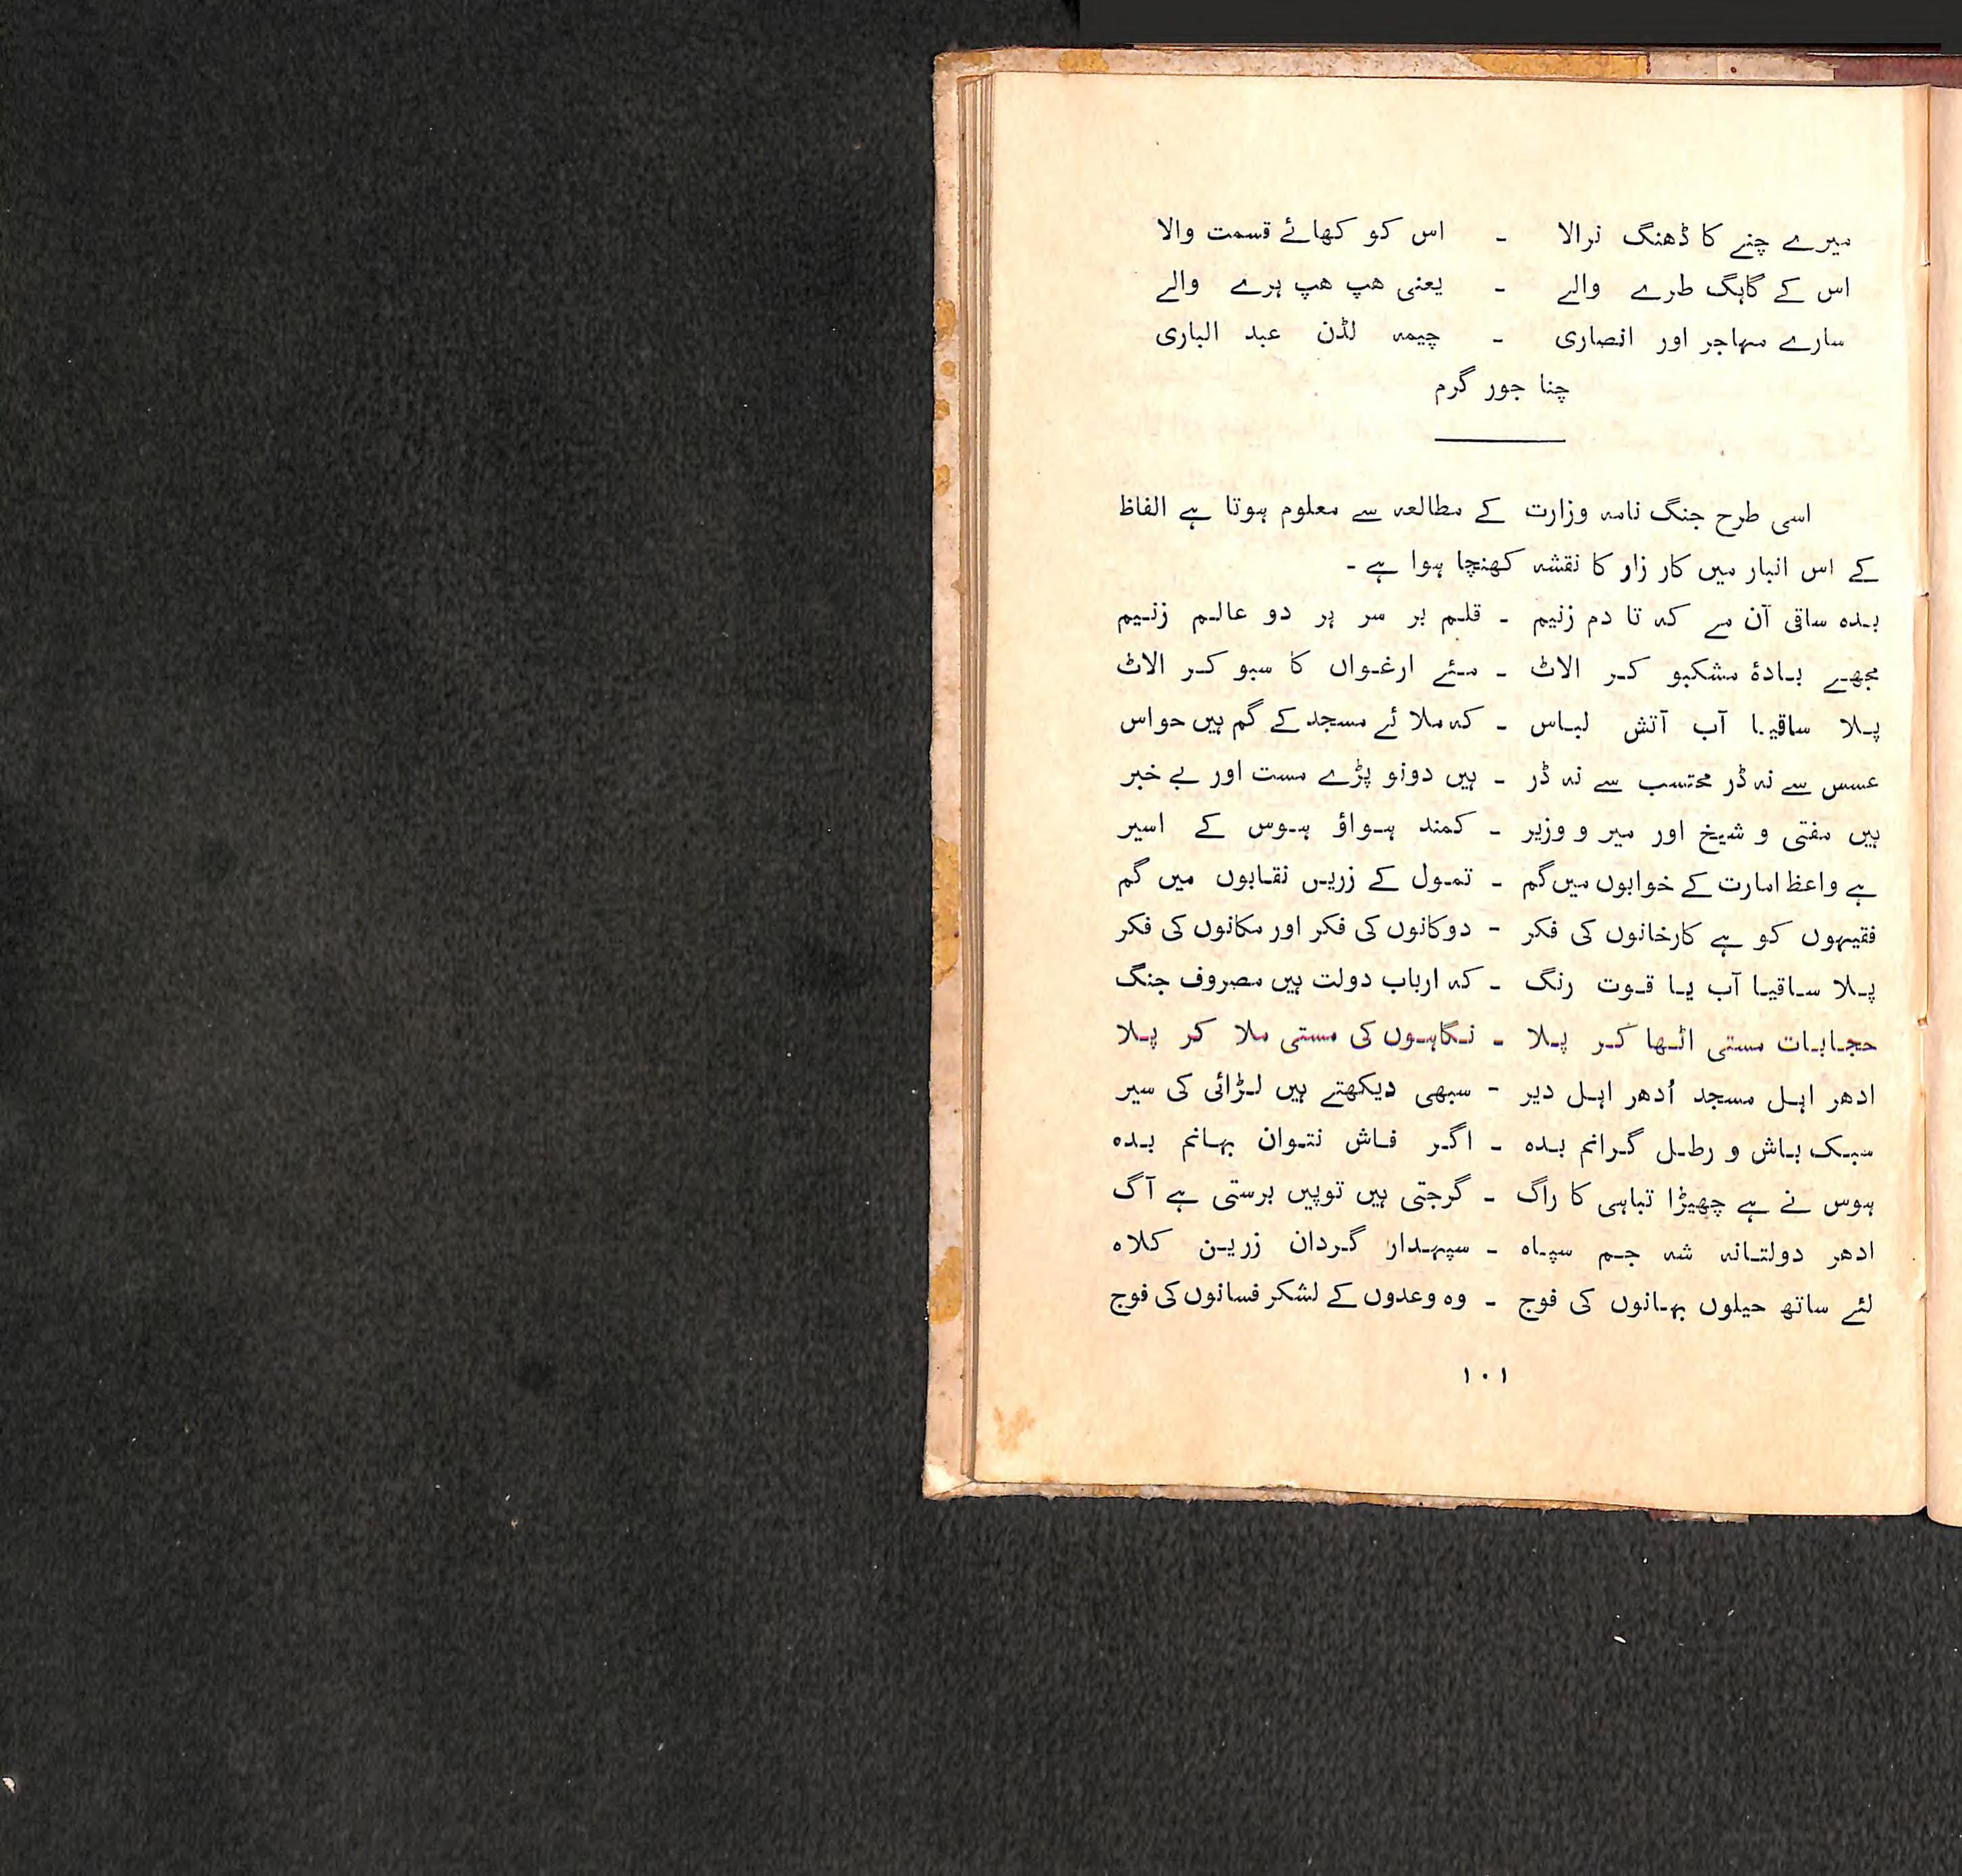 میرے چنے کا ڈھنگ نرالا - اس کو کھائے قسمت والا
اس کے گاہگ طرے والے - یعنی ھپ ھپ ہرے والے
سارے مہاجر اور انصاری - چیمہ لڈن عبد الباری
چنا جور گرم
اسی طرح جنگ نامہ وزارت کے مطالعہ سے معلوم ہوتا ہے الفاظ
کے اس انبار میں کار زار کا نقشہ کھنچا ہوا ہے -
بدہ ساقی آن مے کہ تا دم زنیم - قلم بر سر ہر دو عالم زنیم
مجھے بادۂ مشکبو کر الاٹ - مئے ارغواں کا سبو کر الاٹ
پلا ساقیا آب آتش لباس - کہ ملا ئے مسجد کے گم ہیں حواس
عسس سے نہ ڈر محتسب سے نہ ڈر - ہیں دونو پڑے مست اور بے خبر
ہیں مفتی و شیخ اور میر و وزیر - کمند ہواؤ ہوس کے اسیر
ہے واعظ امارت کے خوابوں میں گم - تمول کے زریں نقابوں میں گم
فقیہوں کو ہے کارخانوں کی فکر - دوکانوں کی فکر اور مکانوں کی فکر
پلا ساقیا آب یا قوت رنگ - کہ ارباب دولت ہیں مصروف جنگ
حجابات مستی اٹھا کر پلا - نگاہوں کی مستی ملا کر پلا
ادھر اہل مسجد اُدھر اہل دیر - سبھی دیکھتے ہیں لڑائی کی سیر
سبک باش و رطل گرانم بدہ - اگر فاش نتوان بہانم بدہ
ہوس نے ہے چھیڑا تباہی کا راگ - گرجتی ہیں توپیں برستی ہے آگ
ادھر دولتانہ شہ جم سپاہ - سپہدار گردان زرین کلاہ
لئے ساتھ حیلوں بہانوں کی فوج - وہ وعدوں کے لشکر فسانوں کی فوج
۱۰۱